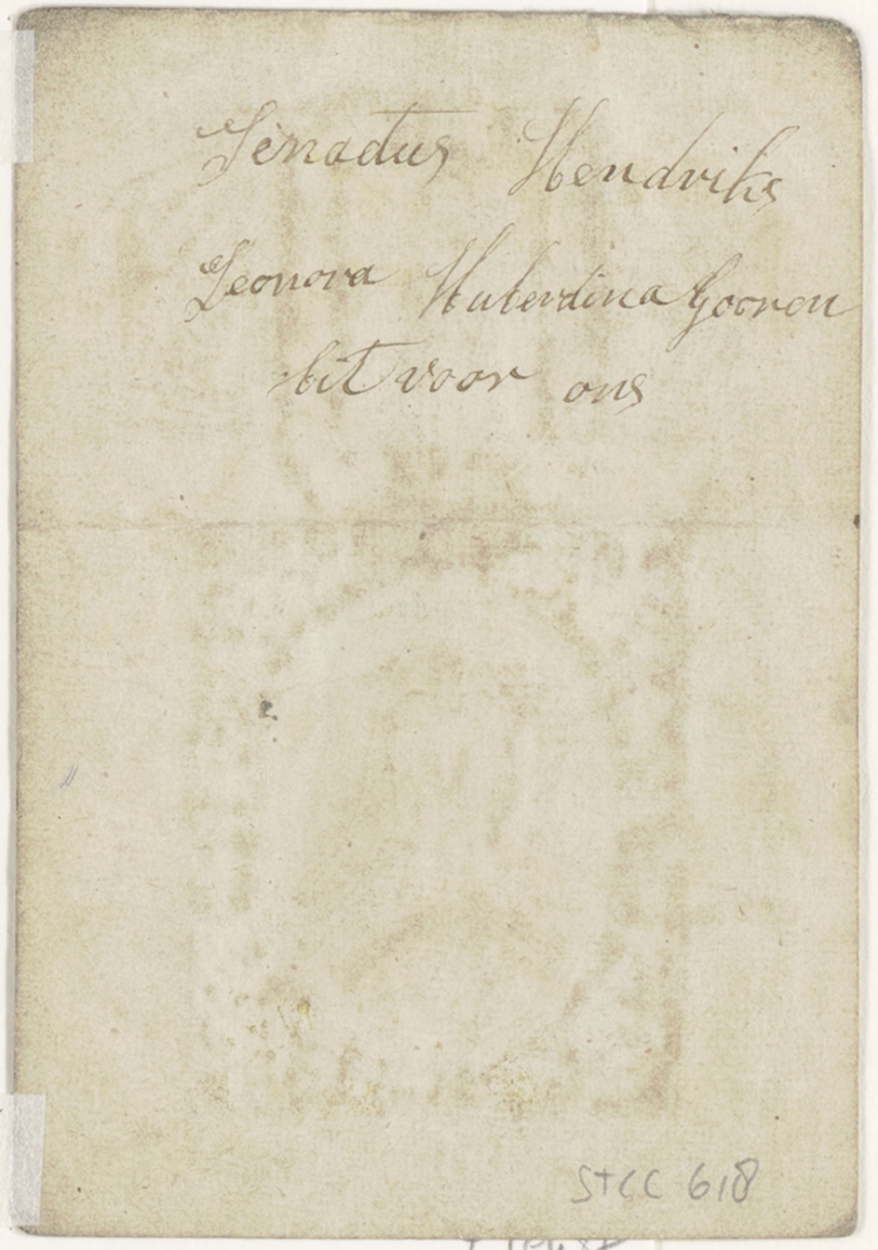 Senadus Hendriks
Leonora Huberdina Gooren
bit voor ons
STCC 618